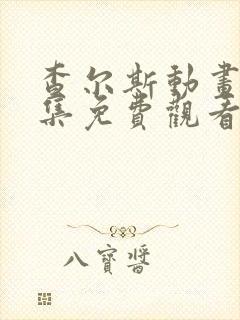 查尔斯動畫
集免費觀看
八寶醬